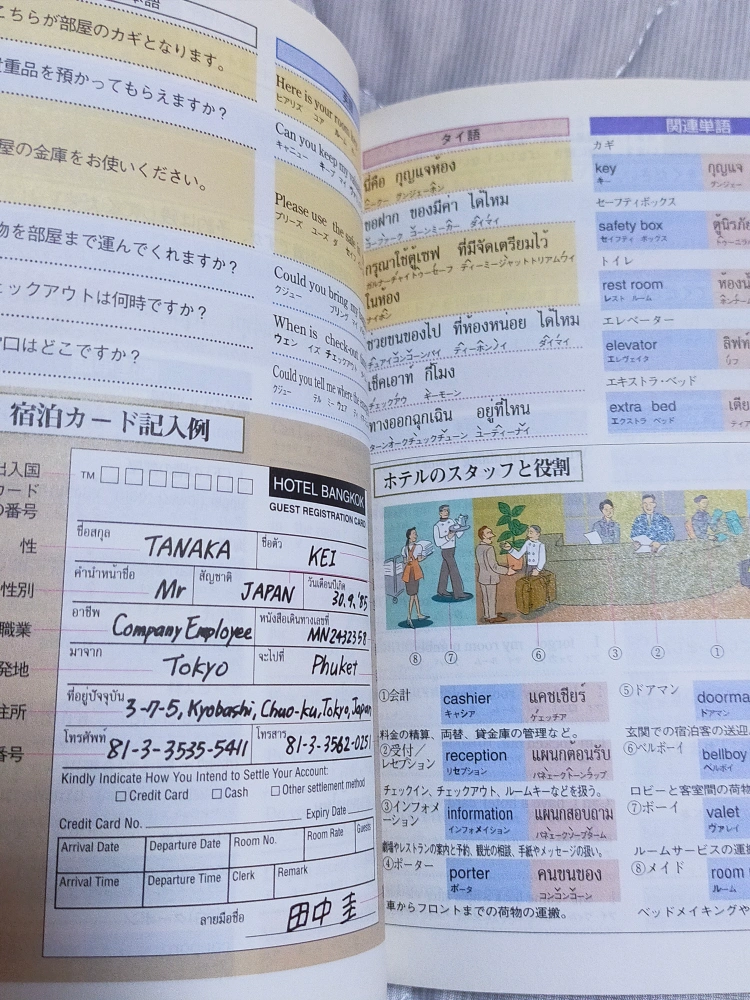 こちらが部屋のカギとなります。
重品を預かってもらえますか?
屋の金庫をお使いください。
物を部屋まで運んでくれますか?
ェックアウトは何時ですか?
口はどこですか?
Here is your room
ヒアリズ ユア ルーム
Can you keep my
キャニュー キープ マイ
Please use the safe
プリーズ ユーズ ダ
Could you bring my
クジュー ブリング マイ
When is check-out
ウェン イズ チェックアウト
Could you tell me where the
クジュー テル ミー ウエア
宿泊カード記入例
出入国
カード
の番号
性
性別
職業
発地
住所
番号
TM
HOTEL BANGKOK
GUEST REGISTRATION CARD
ชื่อสกุล TANAKA ชื่อตัว KEI
คำนำหน้าชื่อ Mr สัญชาติ JAPAN วันเดือนปีเกิด 30.9.'85
อาชีพ Company Employee หนังสือเดินทางเลขที่ MN2432358
มาจาก Tokyo จะไปที่ Phuket
ที่อยู่ปัจจุบัน 3-7-5, Kyobashi, Chuo-ku, Tokyo, Japan
โทรศัพท์ 81-3-3535-5411 โทรสาร 81-3-3562-025
Kindly Indicate How You Intend to Settle Your Account:
Credit Card Cash Other settlement method
Credit Card No. Expiry Date
Arrival Date Departure Date Room No. Room Rate Guests
Arrival Time Departure Time Clerk Remark
ลายมือชื่อ 田中 圭
タイ語
นี่คือ กุญแจห้อง
ขอฝาก ของมีค่า ได้ไหม
กรุณาใช้ตู้เซฟ ที่มีจัดเตรียมไว้
ในห้อง
ナイホン
ช่วยขนของไป ที่ห้องหน่อย ได้ไหม
เช็คเอาท์ กี่โมง
ทางออกฉุกเฉิน อยู่ที่ไหน
関連単語
カギ
key กุญแจ
キー クンジェー
セーフティボックス
safety box ตู้นิรภัย
セイフティ ボックス
トイレ
rest room ห้องน้
レスト ルーム
エレベーター
elevator ลิฟท์
エレヴェイタ リフ
エキストラ・ベッド
extra bed เตีย
エクストラ ベッド ティア
ホテルのスタッフと役割
⑧ ⑦ ⑥ ③ ② ①
①会計 cashier แคชเชียร์
キャシア
料金の精算、両替、貸金庫の管理など。
②受付/レセプション reception แผนกต้อนรับ
リセプション
チェックイン、チェックアウト、ルームキーなどを扱う。
③インフォメーション information แผนกสอบถาม
インフォメイション
劇場やレストランの案内と予約、観光の相談、手紙やメッセージの扱い。
④ポーター porter คนขนของ
ポータ コンコンコーン
車からフロントまでの荷物の運搬。
⑤ドアマン doorma
ドアマン
玄関での宿泊客の送迎
⑥ベルボーイ bellboy
ベルボイ
ロビーと客室間の荷物
⑦ボーイ valet
ヴァレイ
ルームサービスの運搬
⑧メイド room
ルーム
ベッドメイキングや